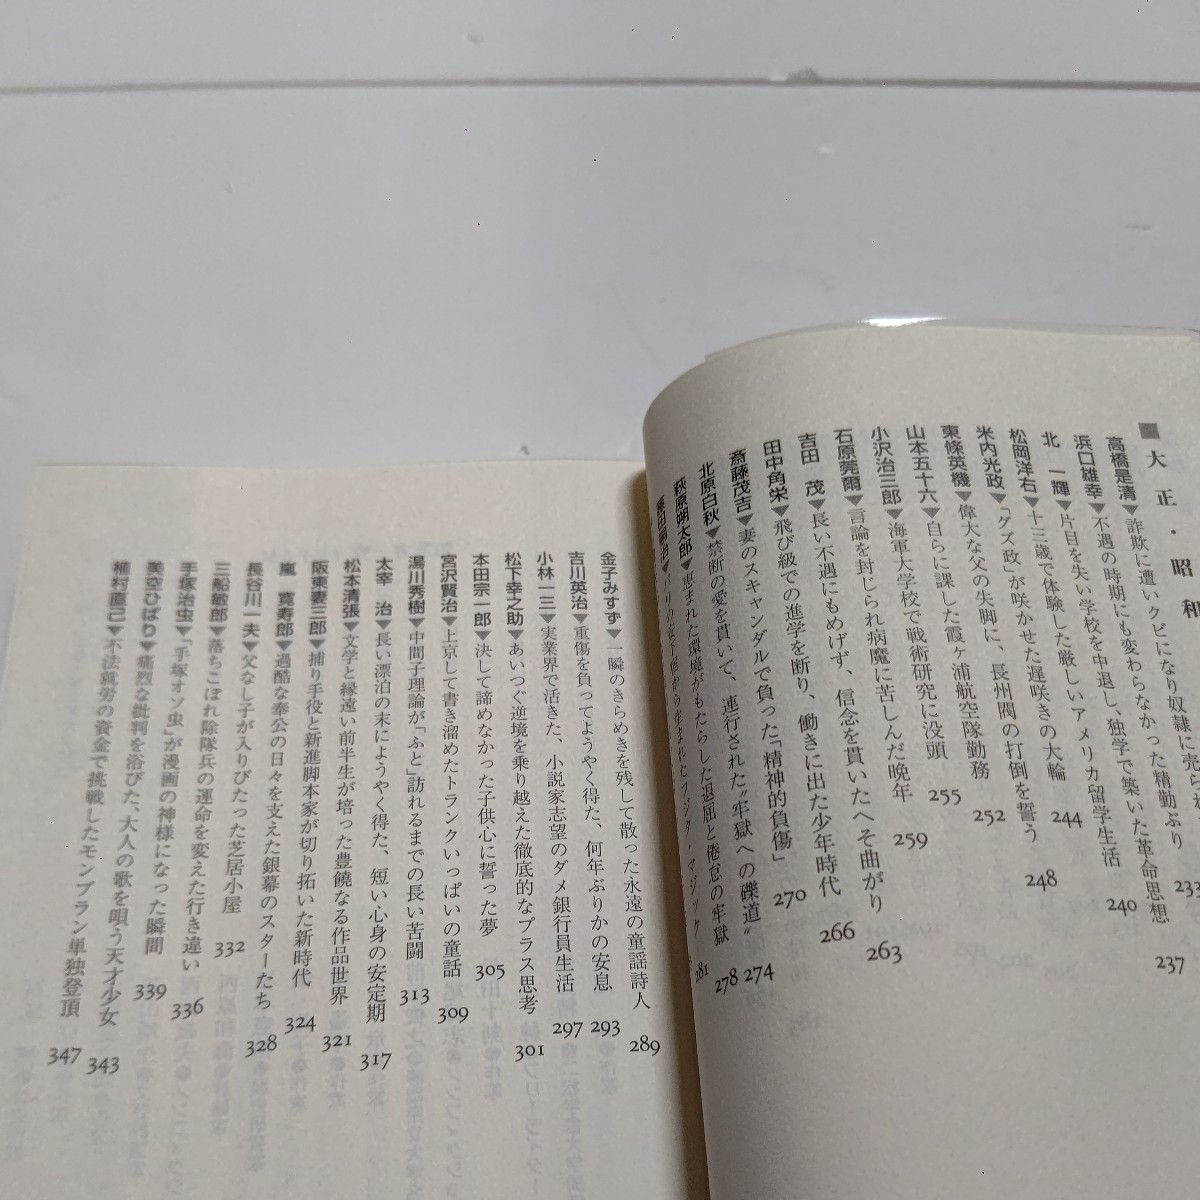 ■大正・昭和
高橋是清▼詐欺に遭いクビになり奴隷に売ら
浜口雄幸▼不遇の時期にも変わらなかった精勤ぶり 233
北 一輝▼片目を失い学校を中退し、独学で築いた革命思想 237
松岡洋右▼十三歳で体験した厳しいアメリカ留学生活 240
米内光政▼「グズ政」が咲かせた遅咲きの大輪 244
東條英機▼偉大な父の失脚に、長州閥の打倒を誓う 248
山本五十六▼自らに課した霞ヶ浦航空隊勤務 252
小沢治三郎▼海軍大学校で戦術研究に没頭 255
石原莞爾▼言論を封じられ病魔に苦しんだ晩年 259
吉田 茂▼長い不遇にもめげず、信念を貫いたへそ曲がり 263
田中角栄▼飛び級での進学を断り、働きに出た少年時代 266
斎藤茂吉▼妻のスキャンダルで負った「精神的負傷」 270
北原白秋▼禁断の愛を貫いて、連行された〝牢獄への礫道〟 274
萩原朔太郎▼恵まれた環境がもたらした退屈と倦怠の牢獄 278
藤田嗣治▼パリの 生まれたフジタ・マジック 281
金子みすず▼一瞬のきらめきを残して散った永遠の童謡詩人 289
吉川英治▼重傷を負ってようやく得た、何年ぶりかの安息 293
小林一三▼実業界で活きた、小説家志望のダメ銀行員生活 297
松下幸之助▼あいつぐ逆境を乗り越えた徹底的なプラス思考 301
本田宗一郎▼決して諦めなかった子供心に誓った夢 305
宮沢賢治▼上京して書き溜めたトランクいっぱいの童話 309
湯川秀樹▼中間子理論が「ふと」訪れるまでの長い苦闘 313
太宰 治▼長い漂泊の末にようやく得た、短い心身の安定期 317
松本清張▼文学と縁遠い前半生が培った豊饒なる作品世界 321
阪東妻三郎▼捕り手役と新進脚本家が切り拓いた新時代 324
嵐 寛寿郎▼過酷な奉公の日々を支えた銀幕のスターたち 328
長谷川一夫▼父なし子が入りびたった芝居小屋 332
三船敏郎▼落ちこぼれ除隊兵の運命を変えた行き違い 336
手塚治虫▼「手塚オソ虫」が漫画の神様になった瞬間 339
美空ひばり▼痛烈な批判を浴びた、大人の歌を唄う天才少女 343
植村直己▼不法就労の資金で挑戦したモンブラン単独登頂 347